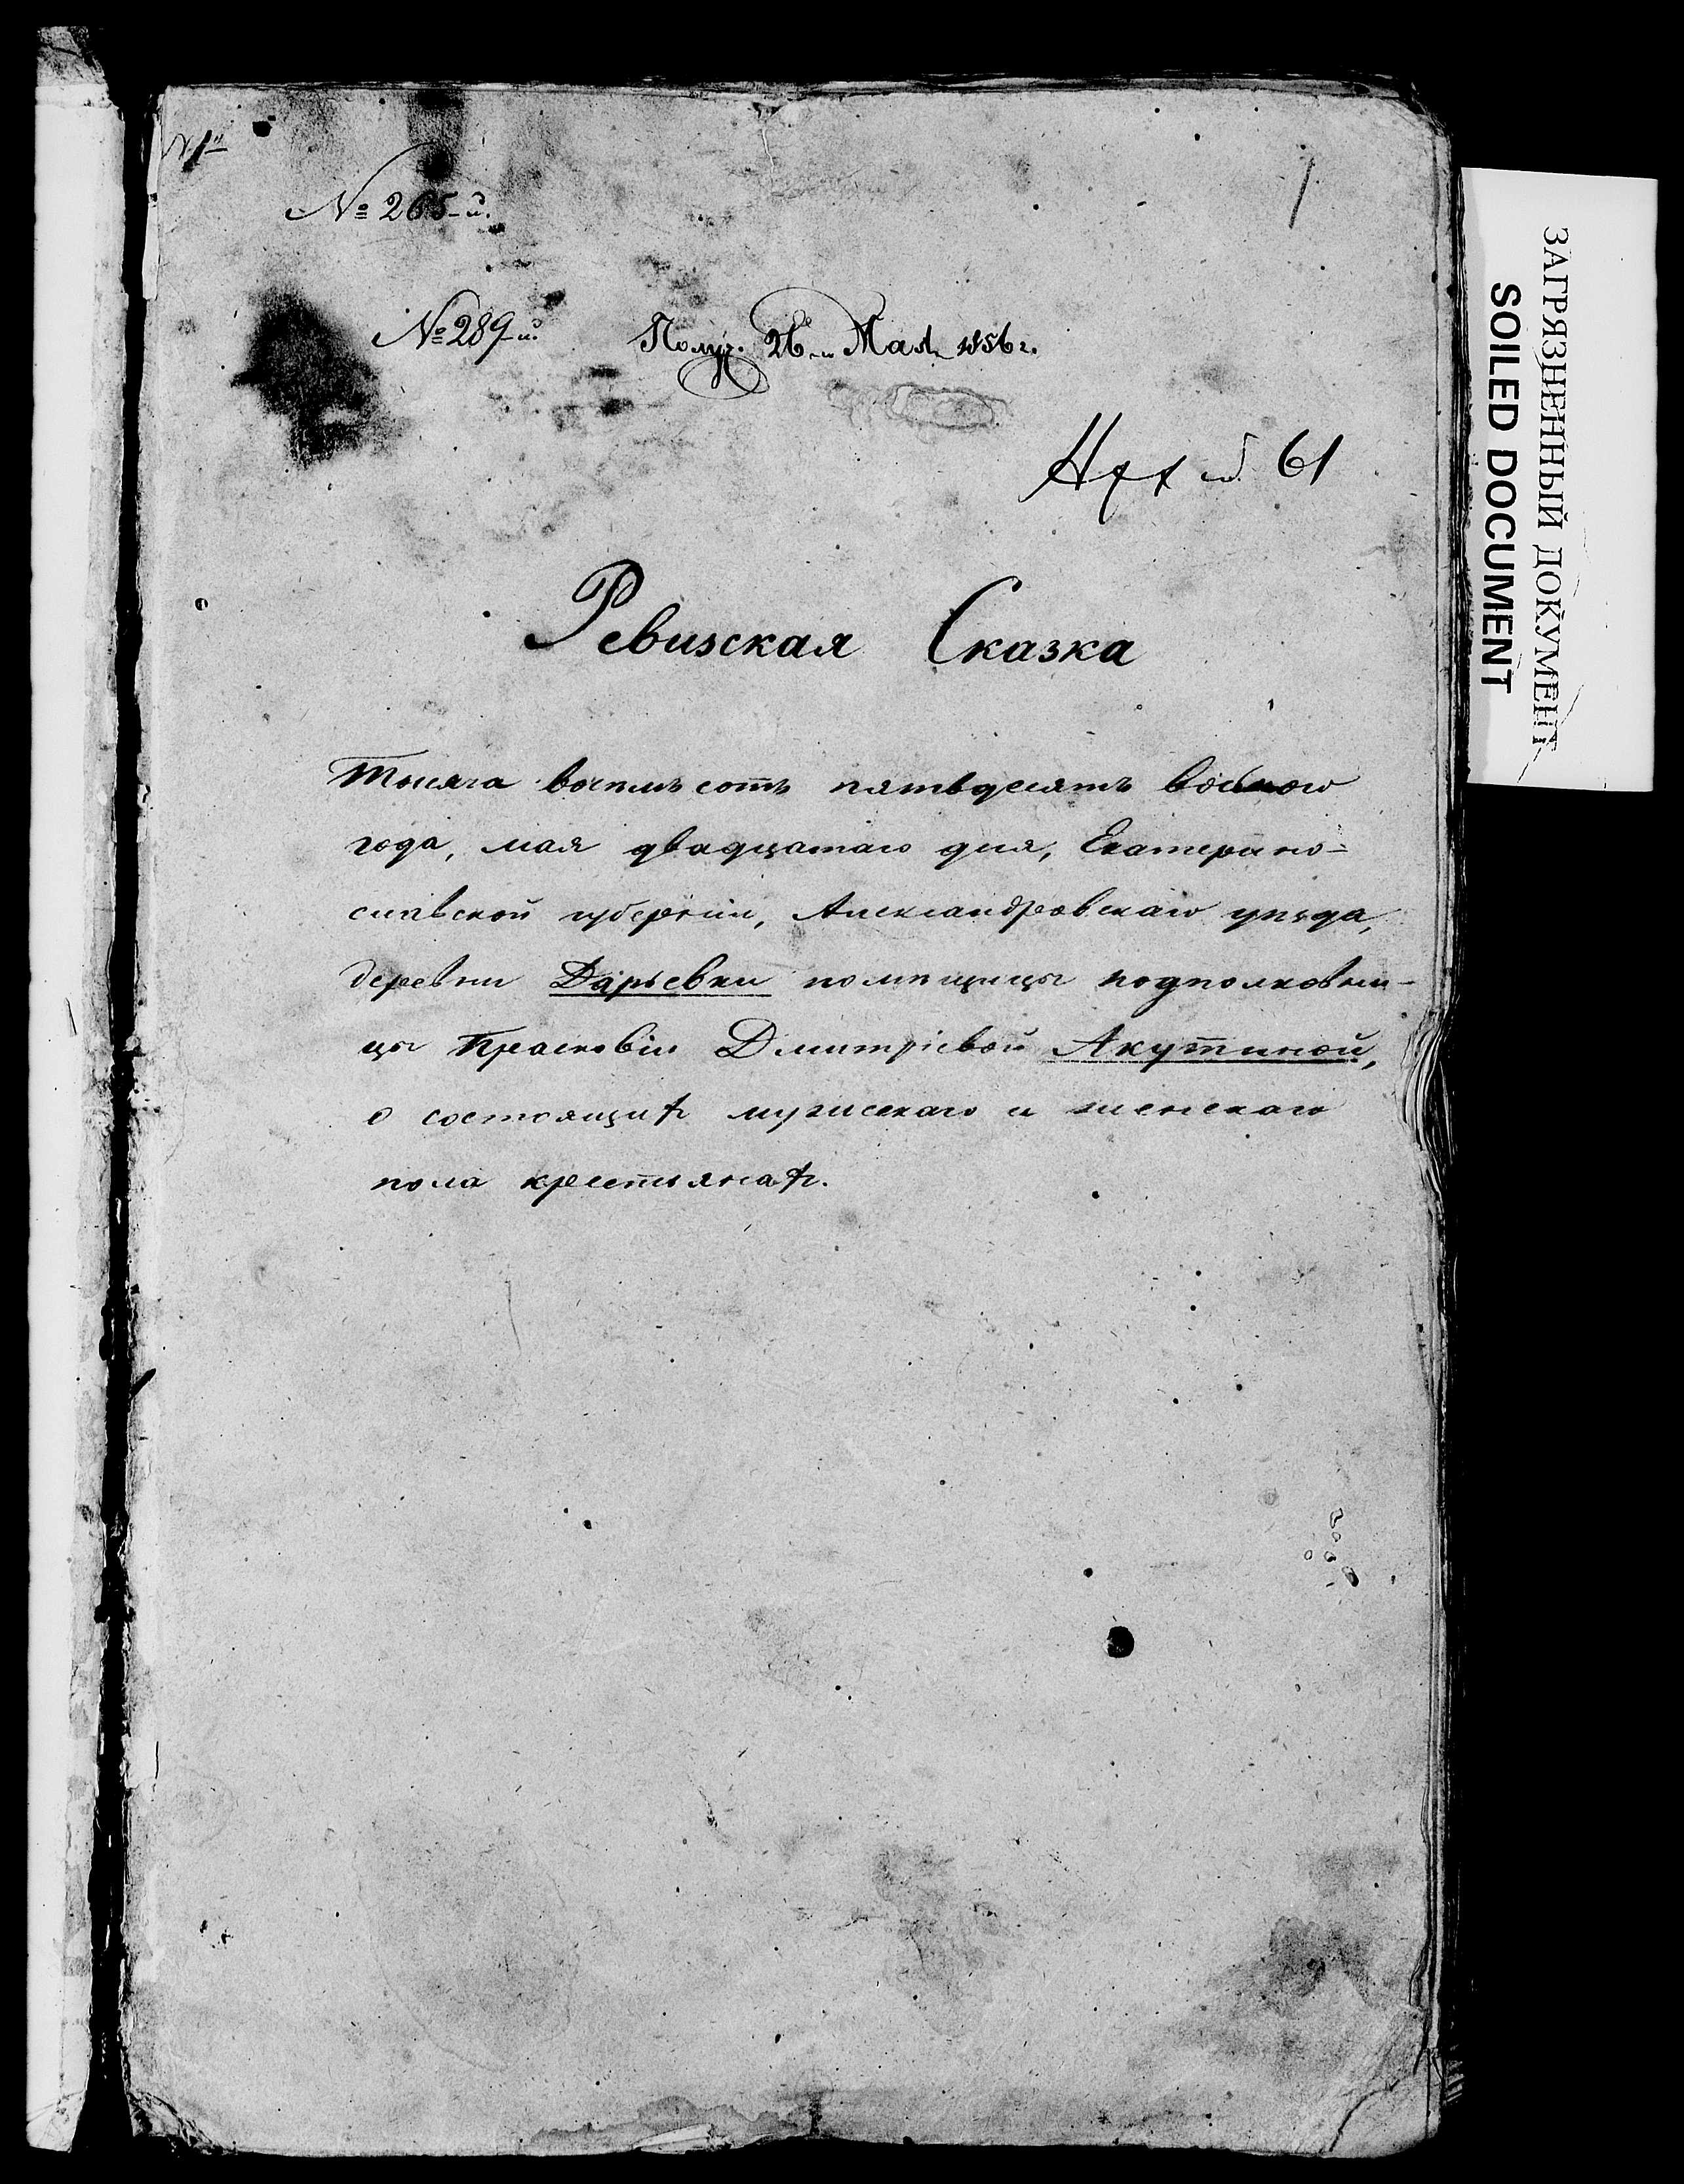 № 1й
№ 265-й.
1
№ 289-й.
Получ. 26го Мая 1858 г.
61
Ревизская Сказка
Тысяча восемь сотъ пятьдесятъ восьмаго
года, мая двадцатаго дня, Екатерино-
славской губерніи, Александровскаго уѣзда,
деревни Дарьевки помѣщицы подполковни-
цы Прасковіи Дмитріевой Акутиной,
о состоящихъ мужескаго и женскаго
пола крестьянахъ.
ЗАГРЯЗНЕННЫЙ ДОКУМЕНТ
SOILED DOCUMENT